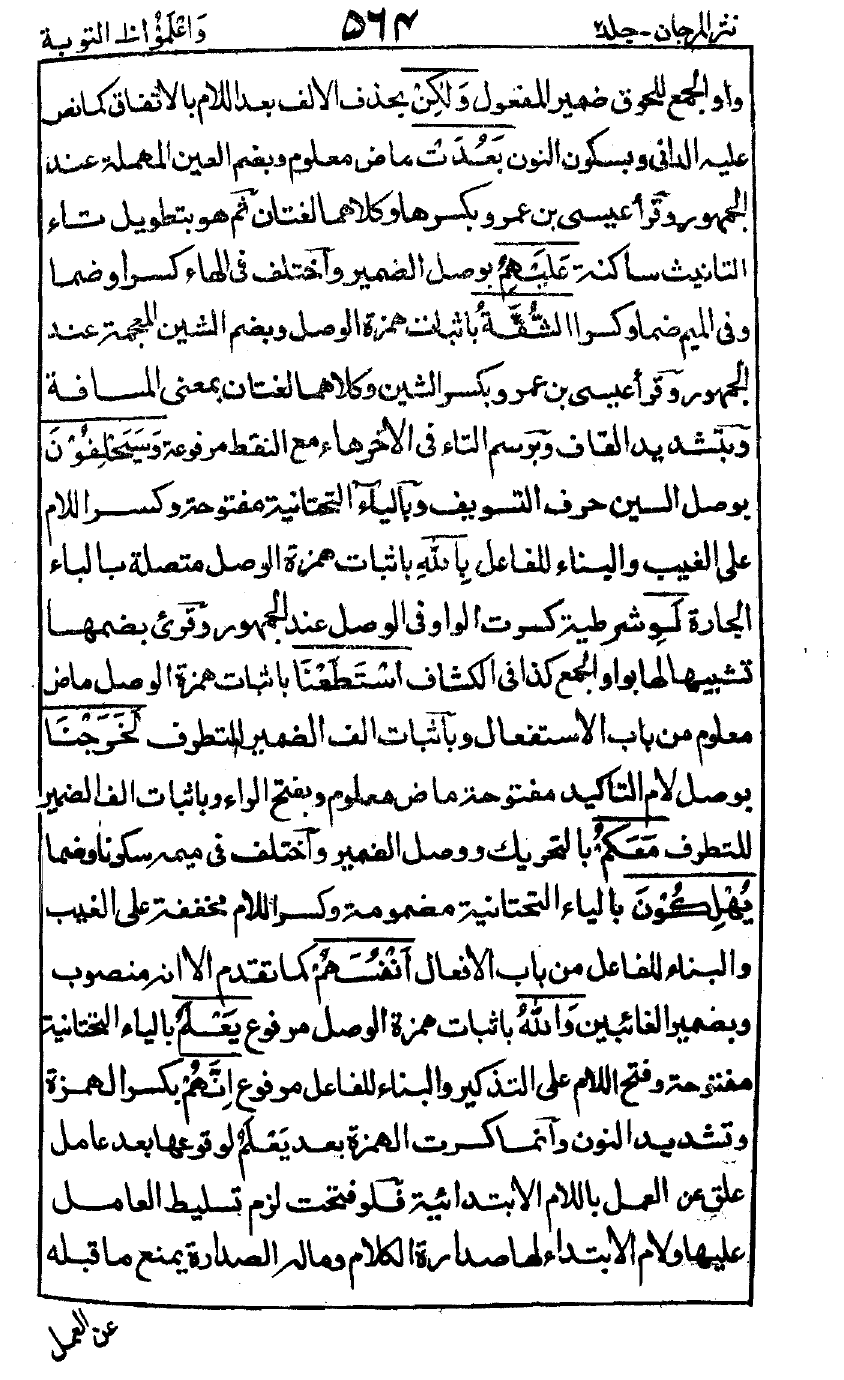 نثر المرجان - جلد ٢ ۵۶۴ واعلموا ١٠ التوبة
واو الجمع للحوق ضمير المفعول وَلٰكِنْ بحذف الالف بعد اللام بالاتفاق كما نص
عليه الدانى وبسكون النون بَعُدَتْ ماض معلوم وبضم العين المهملة عند
الجمهور وقرأ عيسى بن عمر و بكسرها وكلاهما لغتان ثم هو بتطويل تاء
التانيث ساكنة عَلَيْهِمُ بوصل الضمير واختلف فى الهاء كسرا وضما
وفى الميم ضما وكسرا الشُّقَّةُ باثبات همزة الوصل وبضم الشين المعجمة عند
الجمهور وقرأ عيسى بن عمر و بكسر الشين وكلاهما لغتان بمعنى المسافة
وبتشديد القاف وبرسم التاء فى الآخر هاء مع النقط مرفوعة وَسَيَحْلِفُوْنَ
بوصل السين حرف التسويف وبالياء التحتانية مفتوحة وكسر اللام
على الغيب والبناء للفاعل بِاللّٰهِ باثبات همزة الوصل متصلة بالباء
الجارة لَوِ شرطية كسرت الواو فى الوصل عند الجمهور وقرئ بضمها
تشبيها لها بواو الجمع كذا فى الكشاف اسْتَطَعْنَا باثبات همزة الوصل ماض
معلوم من باب الاستفعال وباثبات الف الضمير للتطرف لَخَرَجْنَا
بوصل لام التاكيد مفتوحة ماض معلوم وبفتح الراء وباثبات الف الضمير
للتطرف مَعَكُمْ بالتحريك ووصل الضمير واختلف فى ميمه سكونا وضما
يُهْلِكُوْنَ بالياء التحتانية مضمومة وكسر اللام مخففة على الغيب
والبناء للفاعل من باب الافعال اَنْفُسَهُمْ كما تقدم الا انه منصوب
وبضمير الغائبين وَاللّٰهُ باثبات همزة الوصل مرفوع يَعْلَمُ بالياء التحتانية
مفتوحة وفتح اللام على التذكير والبناء للفاعل مرفوع اِنَّهُمْ بكسر الهمزة
وتشديد النون وانما كسرت الهمزة بعد يَعْلَمُ لوقوعها بعد عامل
علق عن العمل باللام الابتدائية فلو فتحت لزم تسليط العامل
عليها ولام الابتداء لها صدارة الكلام وماله الصدارة يمنع ما قبله
عن العمل